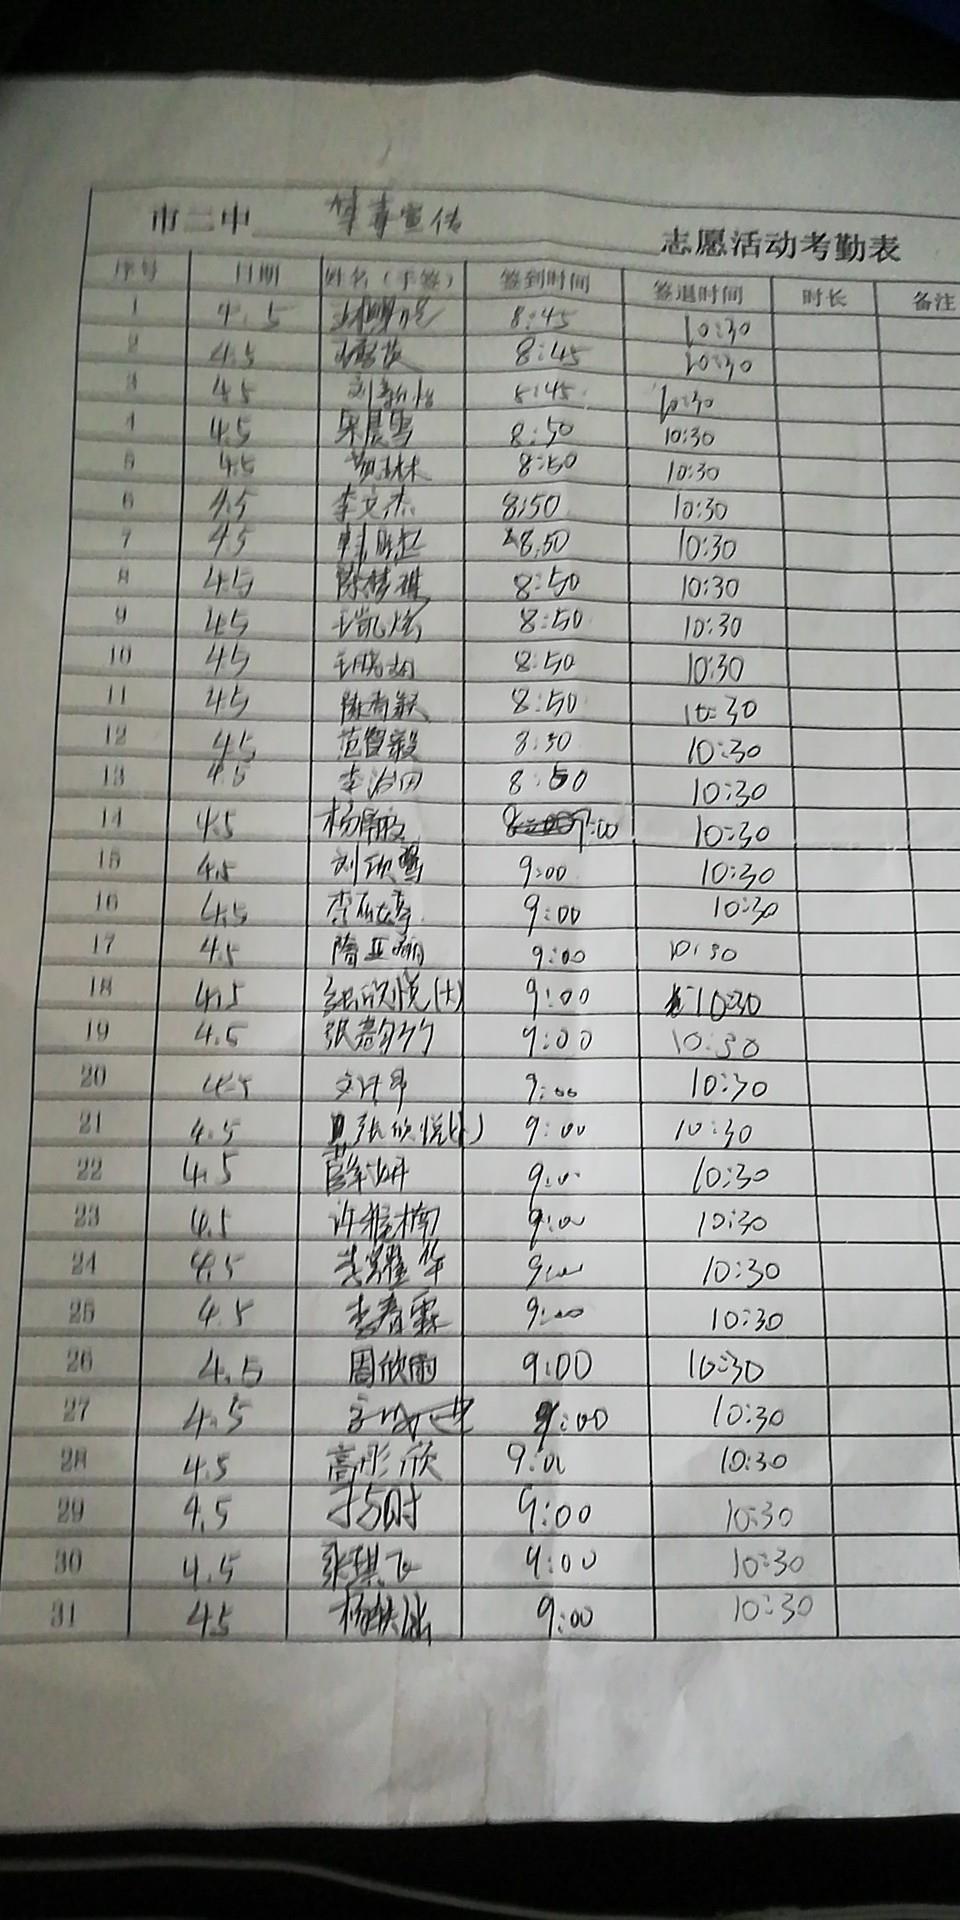 市二中 禁毒宣传 志愿活动考勤表
序号 日期 姓名（手签） 签到时间 签退时间 时长 备注
1 4.5 8:45 10:30
2 4.5 8:45 10:30
3 4.5 刘新怡 8:45 10:30
4 4.5 宋晨雪 8:50 10:30
5 4.5 8:50 10:30
6 4.5 李文杰 8:50 10:30
7 4.5 8:50 10:30
8 4.5 陈梦雅 8:50 10:30
9 4.5 王凯炫 8:50 10:30
10 4.5 8:50 10:30
11 4.5 8:50 10:30
12 4.5 范智毅 8:50 10:30
13 4.5 李治田 8:50 10:30
14 4.5 9:00 10:30
15 4.5 刘欣鹭 9:00 10:30
16 4.5 9:00 10:30
17 4.5 隋亚 9:00 10:30
18 4.5 张欣悦(大) 9:00 10:30
19 4.5 张嘉 9:00 10:30
20 4.5 9:00 10:30
21 4.5 张欣悦(小) 9:00 10:30
22 4.5 9:00 10:30
23 4.5 许雅楠 9:00 10:30
24 4.5 9:00 10:30
25 4.5 李春霖 9:00 10:30
26 4.5 周欣雨 9:00 10:30
27 4.5 9:00 10:30
28 4.5 高彤欣 9:00 10:30
29 4.5 于与时 9:00 10:30
30 4.5 张琪飞 9:00 10:30
31 4.5 杨 9:00 10:30